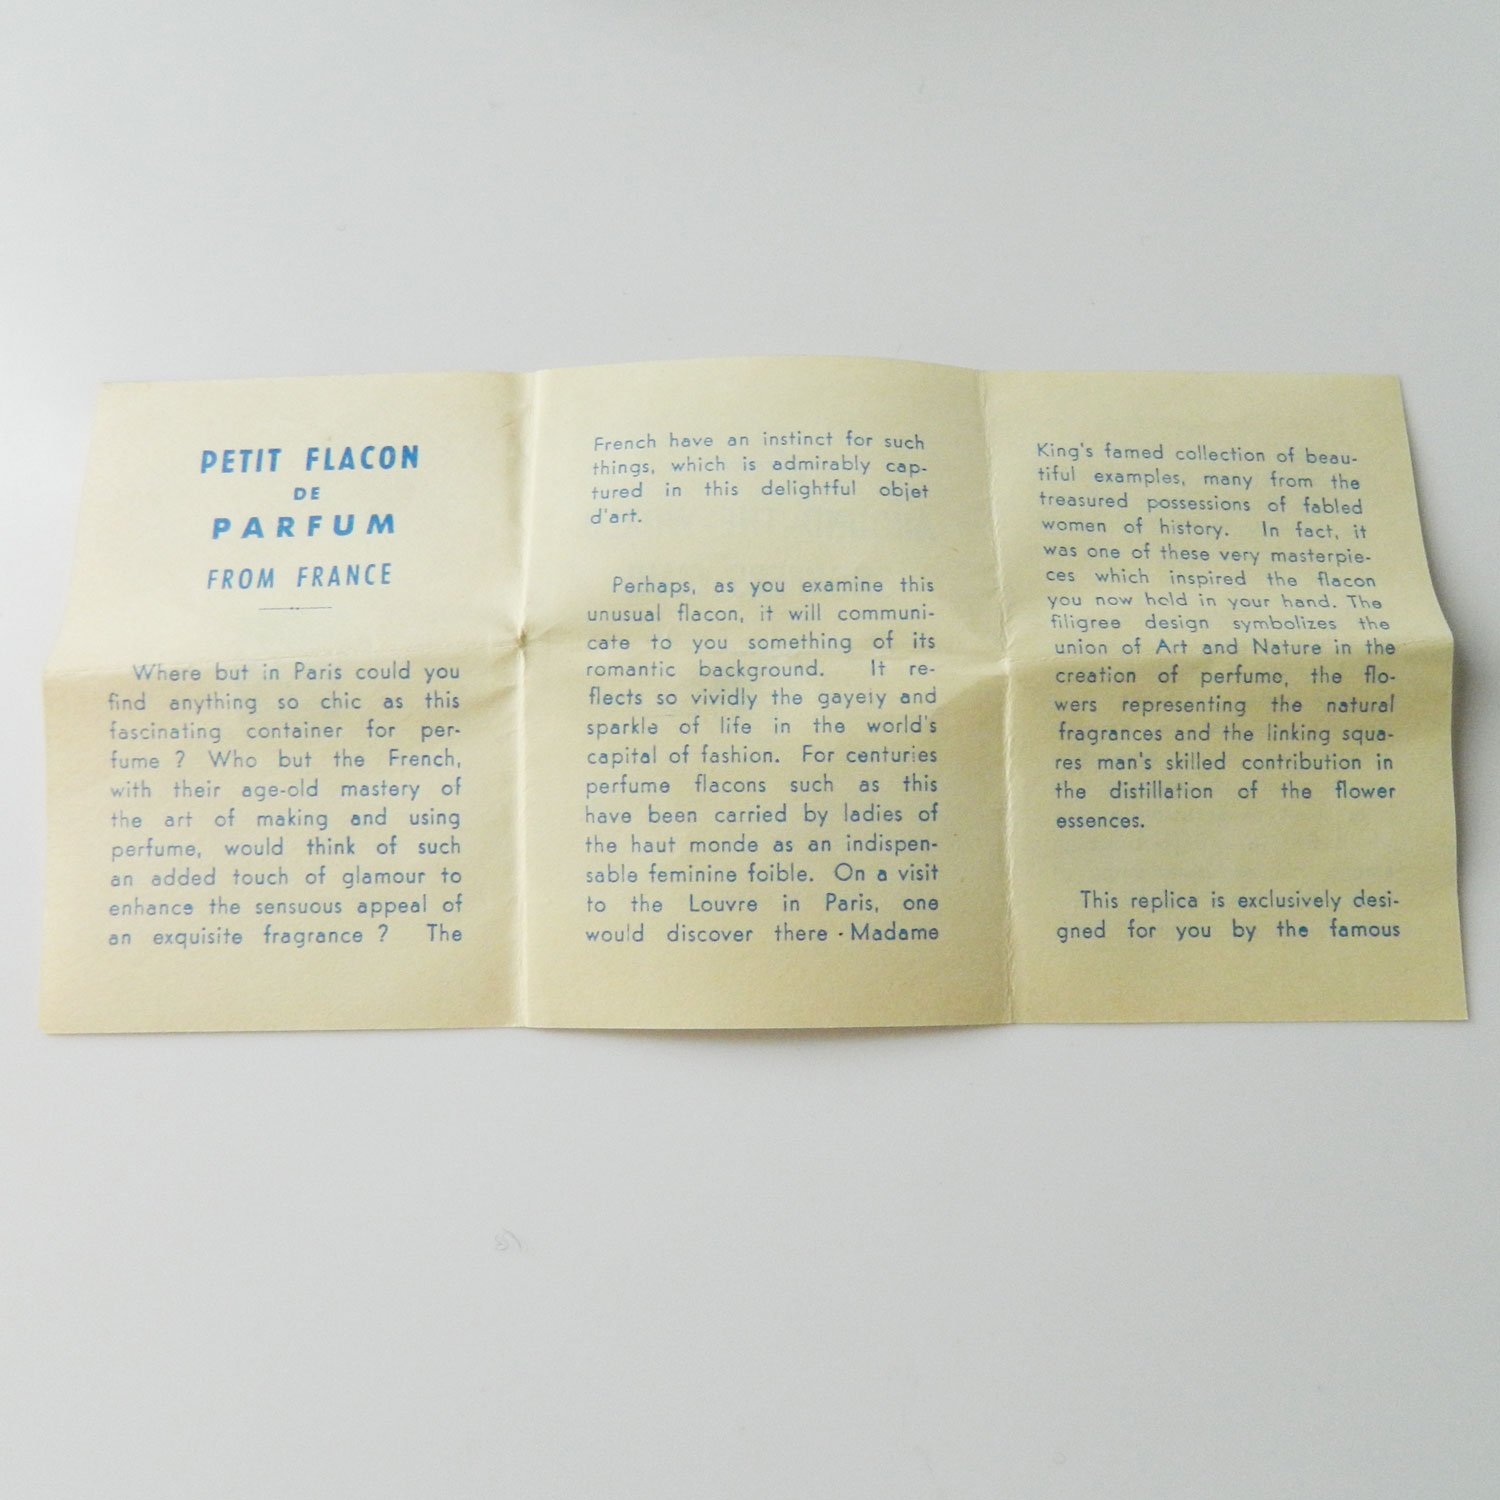 PETIT FLACON
DE
PARFUM
FROM FRANCE
Where but in Paris could you
find anything so chic as this
fascinating container for per-
fume ? Who but the French,
with their age-old mastery of
the art of making and using
perfume, would think of such
an added touch of glamour to
enhance the sensuous appeal of
an exquisite fragrance ? The
French have an instinct for such
things, which is admirably cap-
tured in this delightful objet
d'art.
Perhaps, as you examine this
unusual flacon, it will communi-
cate to you something of its
romantic background. It re-
flects so vividly the gayety and
sparkle of life in the world's
capital of fashion. For centuries
perfume flacons such as this
have been carried by ladies of
the haut monde as an indispen-
sable feminine foible. On a visit
to the Louvre in Paris, one
would discover there · Madame
King's famed collection of beau-
tiful examples, many from the
treasured possessions of fabled
women of history. In fact, it
was one of these very masterpie-
ces which inspired the flacon
you now hold in your hand. The
filigree design symbolizes the
union of Art and Nature in the
creation of perfume, the flo-
wers representing the natural
fragrances and the linking squa-
res man's skilled contribution in
the distillation of the flower
essences.
This replica is exclusively desi-
gned for you by the famous